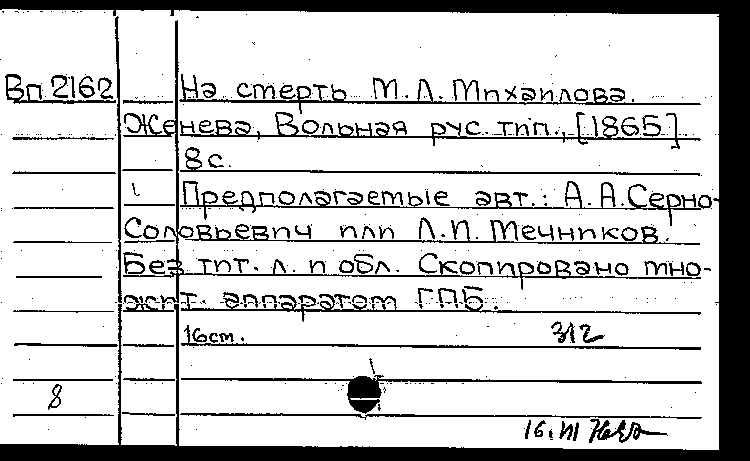 Вп 2162 На смерть М.Л. Михайлова.
Женева, Вольная рус. тип., [1865]
8 с.
Предполагаемые авт.: А.А. Серно-
Соловьевич или Л.И. Мечников.
Без тит. л. и обл. Скопировано мно-
жит. аппаратом ГПБ.
16 см. 312
8
16. III